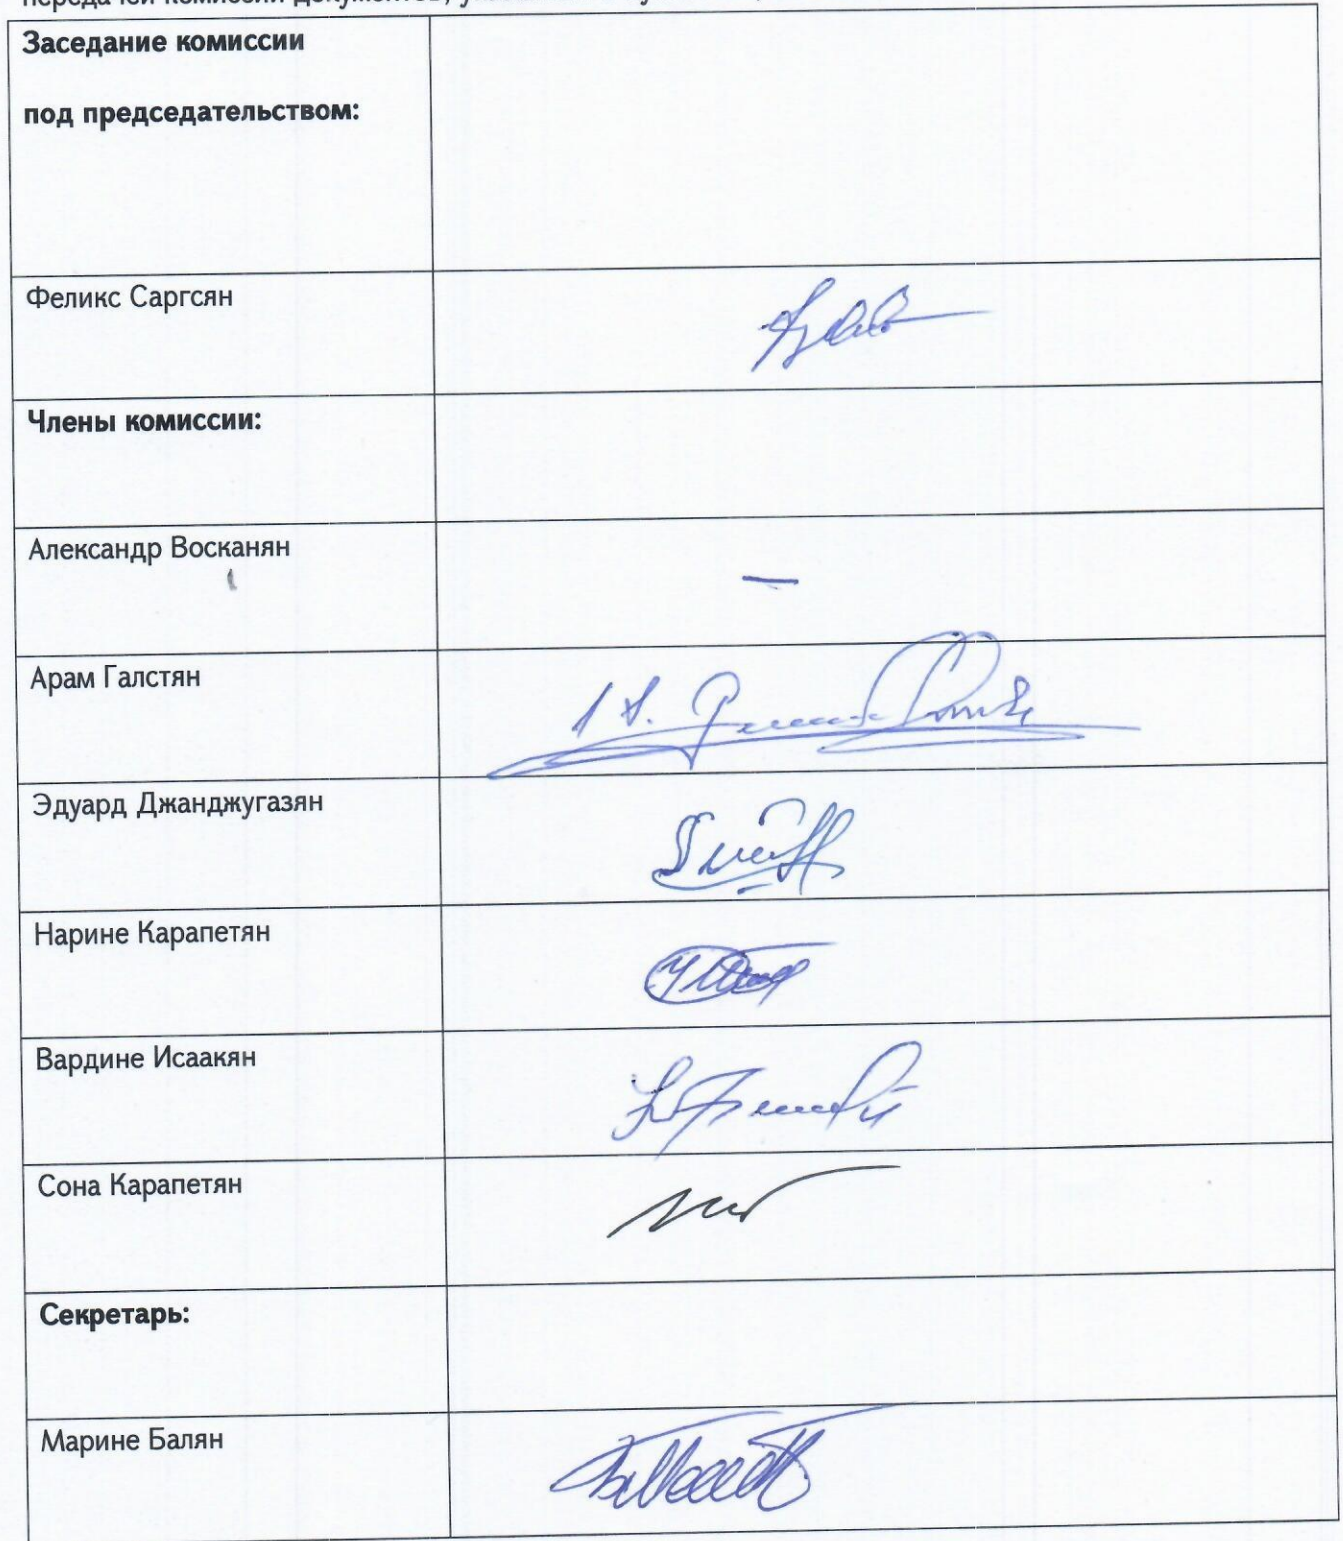 Заседание комиссии
под председательством:
Феликс Саргсян
Члены комиссии:
Александр Восканян
—
Арам Галстян
Эдуард Джанджугазян
Нарине Карапетян
Вардине Исаакян
Сона Карапетян
Секретарь:
Марине Балян